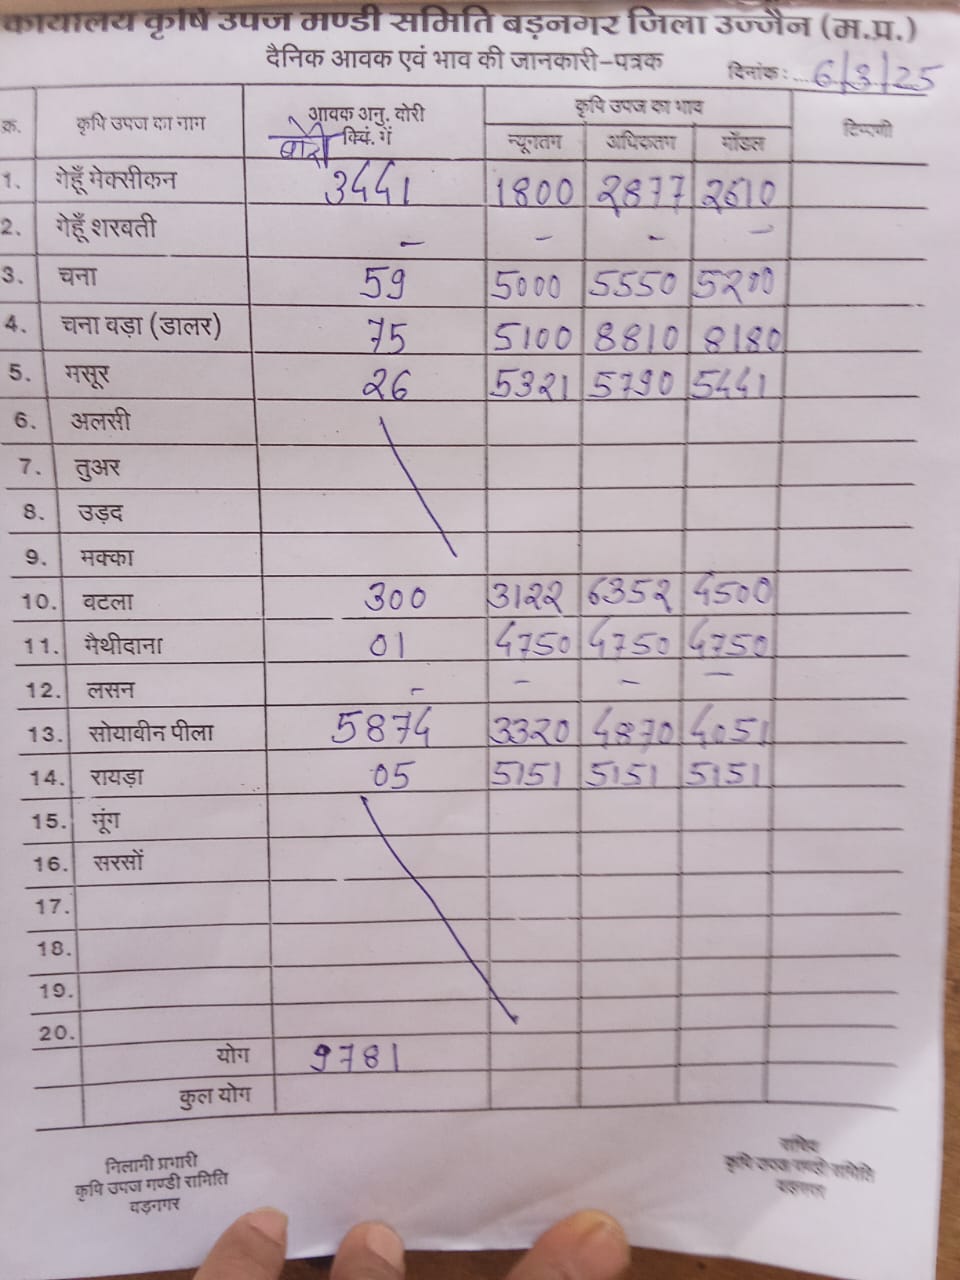 कार्यालय कृषि उपज मण्डी समिति बड़नगर जिला उज्जैन (म.प्र.)
दैनिक आवक एवं भाव की जानकारी-पत्रक
दिनांक: ... 6/3/25
क्र. कृषि उपज का नाम आवक अनु. वोरी क्विं. में बोरी कृषि उपज का भाव टिप्पणी
न्यूनतम अधिकतम मॉडल
1. गेहूँ मेक्सीकन 3441 1800 2877 2610
2. गेहूँ शरवती - - - -
3. चना 59 5000 5550 5200
4. चना वड़ा (डालर) 75 5100 8810 8180
5. मसूर 26 5321 5790 5441
6. अलसी
7. तुअर
8. उड़द
9. मक्का
10. वटला 300 3122 6352 4500
11. मैथीदाना 01 4750 4750 4750
12. लसन - - - -
13. सोयावीन पीला 5874 3320 4870 4051
14. रायड़ा 05 5151 5151 5151
15. मूंग
16. सरसों
17.
18.
19.
20.
योग 9781
कुल योग
निलामी प्रभारी
कृषि उपज मण्डी समिति
वड़नगर
सचिव
कृषि उपज मण्डी समिति
वड़नगर